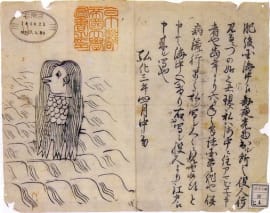 肥後国海中え毎夜光物出ル所之役人行
見るニづの如之者現ス私ハ海中ニ住アマビヱト申
者也当年より六ヶ年之間諸国豊作也併
病流行早々私ヲ写シ人々ニ見セ候得と
申て海中へ入けり右写シ役人より江戸え
申来ル写也
弘化三年四月中旬